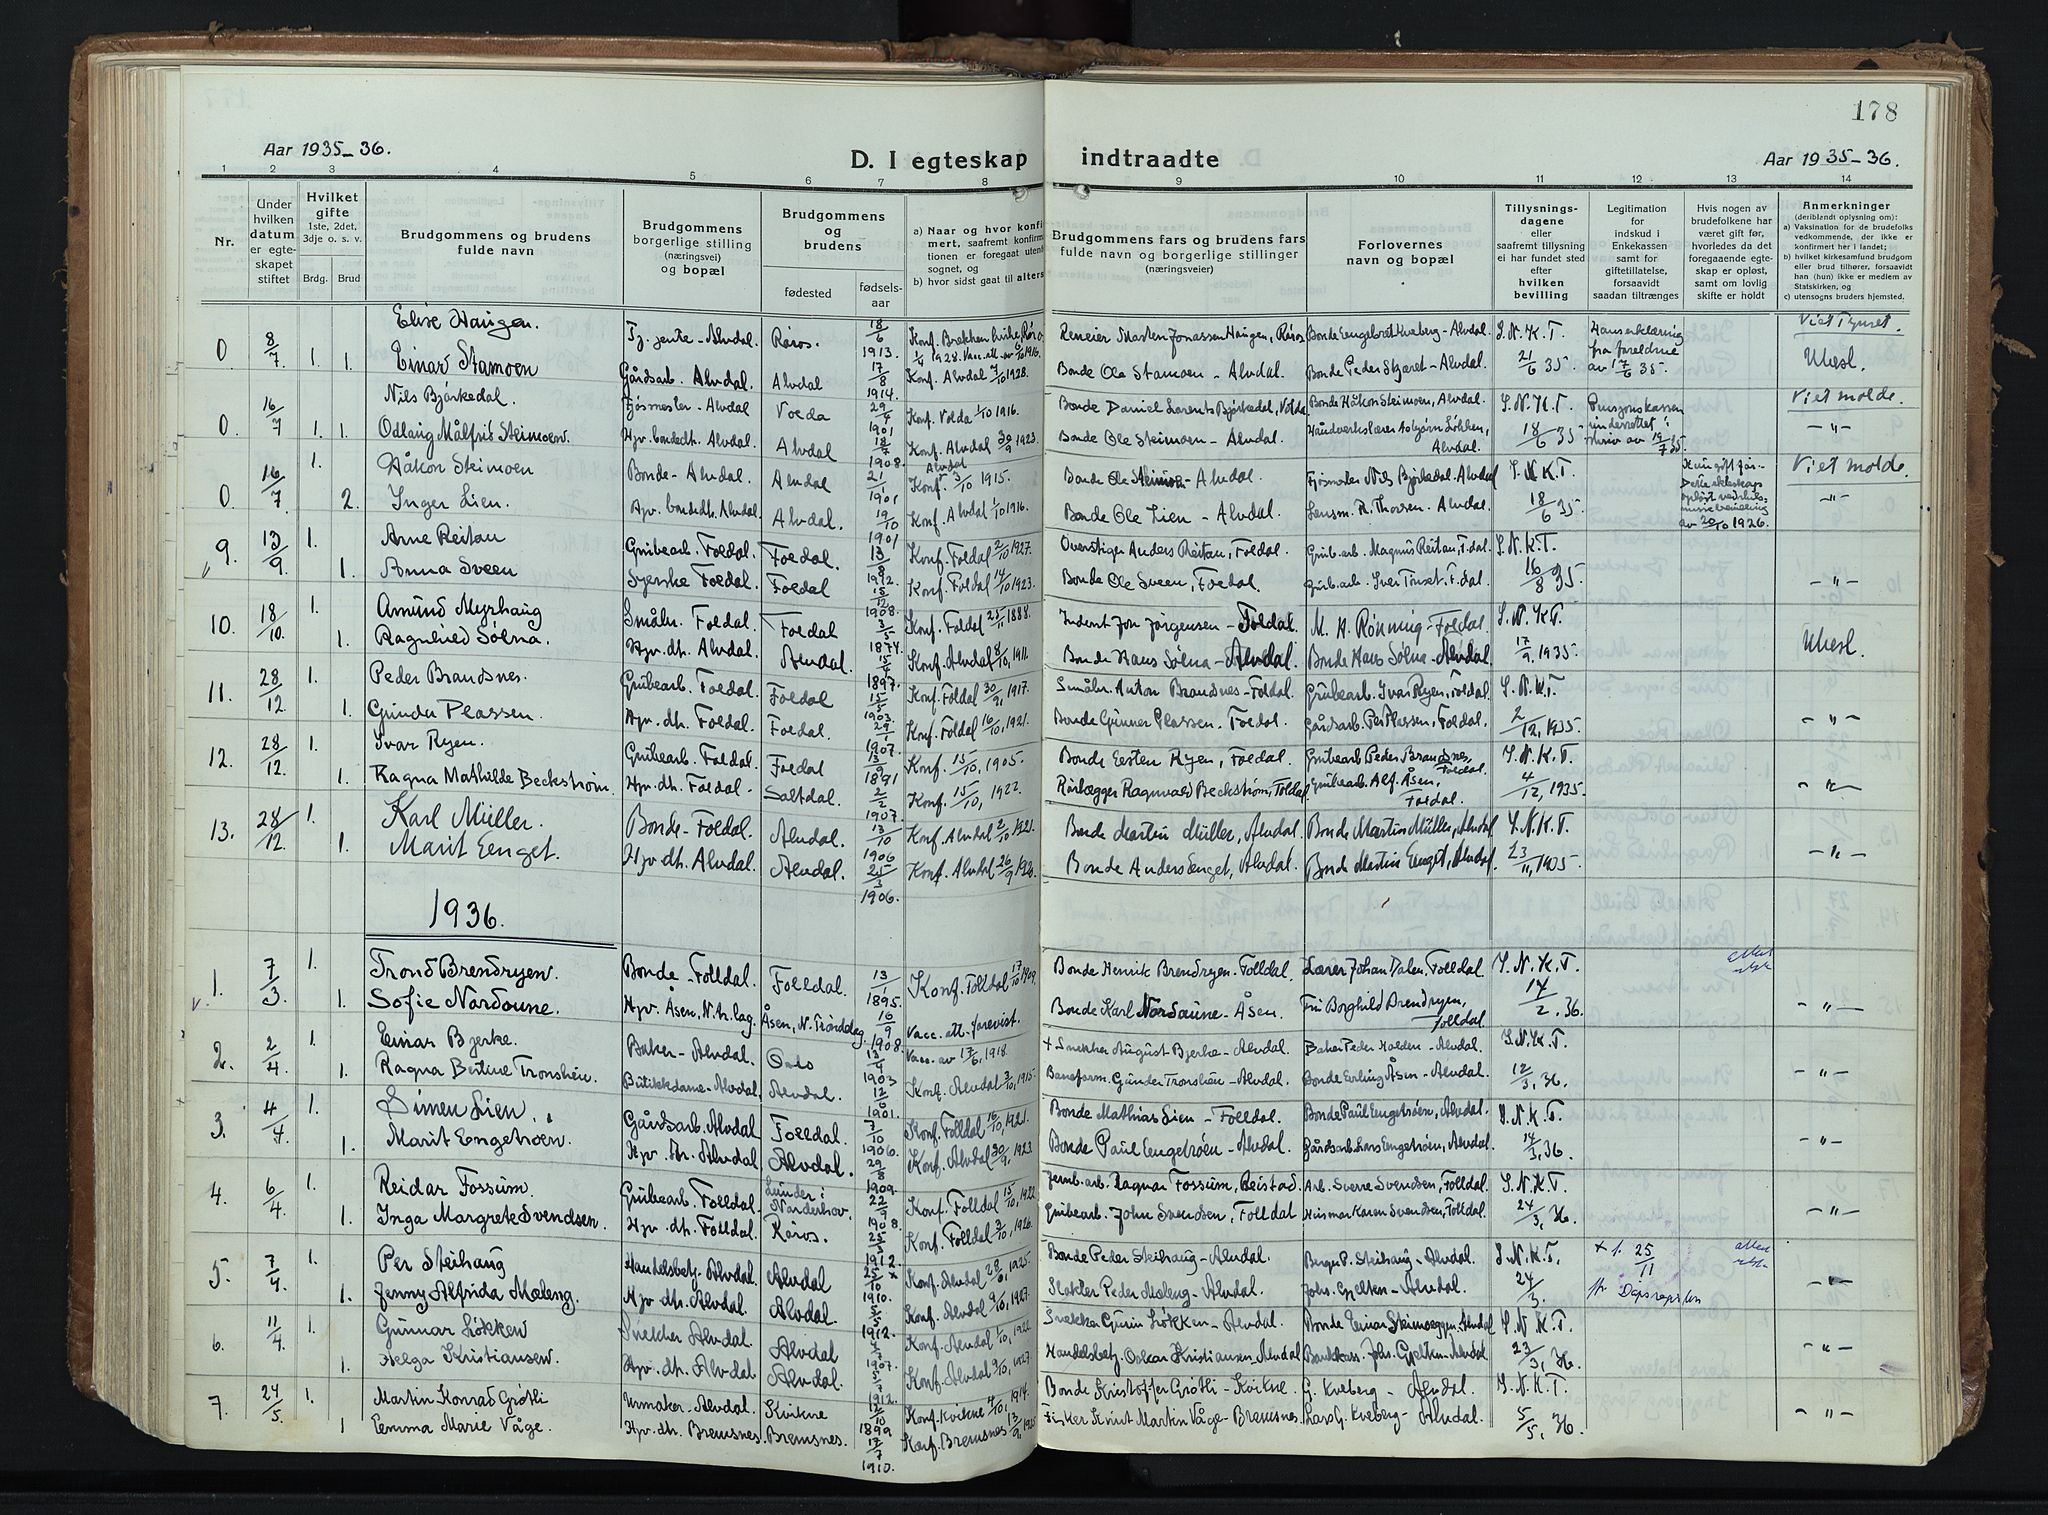 178
Aar 1935-36.
D. I egteskap indtraadte
Aar 1935-36.
1 2 3 4 5 6 7 8 9 10 11 12 13 14
Nr.
Under hvilken datum er egteskapet stiftet
Hvilket gifte 1ste, 2det, 3dje o. s. v.
Brdg. Brud
Brudgommens og brudens fulde navn
Brudgommens borgerlige stilling (næringsvei) og bopæl
Brudgommens og brudens
fødested
fødselsaar
a) Naar og hvor konfi
mert, saafremt konfirm
tionen er foregaat uten
sognet, og
b) hvor sidst gaat til alters
Brudgommens fars og brudens fars fulde navn og borgerlige stillinger (næringsveier)
Forlovernes navn og bopæl
Tillysningsdagene eller saafremt tillysning ei har fundet sted efter hvilken bevilling
Legitimation for indskud i Enkekassen samt for giftetillatelse, forsaavidt saadan tiltrænges
Hvis nogen av brudefolkene har været gift før, hvorledes da det foregaaende egteskap er opløst, samt om lovlig skifte er holdt
Anmerkninger (deriblandt oplysning om):
a) Vaksination for de brudefolks vedkommende, der ikke er konfirmert her i landet;
b) hvilket kirkesamfund brudgom eller brud tilhører, forsaavidt han (hun) ikke er medlem av Statskirken, og
c) utensogns bruders hjemsted.
0 8/7 1. 1. Elise Haugen. Tj. jente - Alvdal Røros. 18/6 1913. Haugen, Røros Bonde Engebret Kveberg - Alvdal. S. N. K. T. Viet Tynset.
Einar Stamoen Gårdsarb. Alvdal. Alvdal 17/8 1914. Konf. Alvdal 7/10 1928. Bonde Ole Stamoen - Alvdal. Bonde Peder Stjæret - Alvdal. 21/6 35. av 17/6 35. Ubesl.
0. 16/7 1. 1. Nils Bjørkedal. Fjøsmester - Alvdal Volda 29/4 1901 Konf. Volda 1/10 1916. Bonde Daniel Larents Bjørkedal, Volda Bonde Håkon Steimoen, Alvdal. S. N. K. T. Pensjonskassen Viet Molde.
Odlaug Målfrid Steimoen. Hjv. bondedt. Alvdal. Alvdal 18/7 1908. Konf. Alvdal 30/9 1923. Bonde Ole Steimoen - Alvdal. Alvdal. 18/6 35 underrettet i skriv av 19/7 35. - " -
0 16/7 1. Håkon Steimoen Bonde - Alvdal Alvdal 21/1 1901 Konf. Alvdal 3/10 1915. Bonde Ole Steimoen - Alvdal. Fjøsmester Nils Bjørkedal. Alvdal S. N. K. T. Viet Molde.
2. Inger Lien. Hjv. bondedt. Alvdal. Alvdal. 19/10 1901 Konf. Alvdal 1/10 1916. Bonde Ole Lien - Alvdal. Lensm. R. Thorsen. Alvdal 18/6 35. av 20/10 1926. - " -
9. 13/9. 1. Arne Reitan Grubearb. Foldal. Foldal. Konf. Foldal 2/10 1927. Overstiger Anders Reitan, Foldal. Grub. arb. Magnus Reitan, F.dal. S. N. K. T.
1. Anna Sveen Syerske Foldal Foldal 15/12 1908. Konf. Foldal 14/10 1923. Bonde Ole Sveen, Foldal Grub. arb. Iver Tonset. F.dal. 16/8 35 - " -
10. 18/10. 1. Amund Myrhaug Småbr. Foldal. Foldal 3/5 1874. Konf. Foldal 25/11 1888. Jon Jørgensen - Foldal. M. H. Rönning - Foldal S. N. K. T.
1. Ragnhild Sølna. Hjv. dt. Alvdal. Alvdal. 15/4 1897. Konf. Alvdal 8/10, 1911. Bonde Hans Sølna - Alvdal. Bonde Hans Sølna - Alvdal 17/9, 1935. Ubesl.
11. 28/12 1. Peder Brandsnes. Grubearb. Foldal. Foldal 15/5 1903. Konf. Foldal 30/9, 1917. Småbr. Anton Brandsnes - Foldal. Grubearb. Ivar Ryen, Foldal. S. N. K. T.
1. Gunda Plassen. Hjv. dt. Foldal. Foldal. 29/1 1907. Konf. Foldal 16/10, 1921. Bonde Gunner Plassen. Foldal. Gårdsarb. Per Plassen, Foldal. 2/12, 1935. - " -
12. 28/12. 1. Ivar Ryen. Grubearb. Foldal. Foldal 13/9 1891 Konf. 15/10, 1905. Bonde Esten Ryen, Foldal. Grubearb. Peder Brandsnes, Foldal. S. N. K. T.
1. Ragna Mathilde Beckstrøm. Hjv. dt. Foldal. Saltdal. 2/2 1907. Konf. 15/10, 1922. Rørlegger Ragnvald Beckstrøm, Foldal. Grubearb. Alf. Åsen, Foldal. 4/12, 1935. - " -
13. 28/12. 1. Karl Müller. Bonde - Foldal. Alvdal. 13/10 1906 Konf. Alvdal 2/10 1921. Bonde Martin Müller, Alvdal Bonde Martin Müller, Alvdal S. N. K. T.
1. Marit Eenget. Hjv. dt. Alvdal. Alvdal. 25/3 1906. Konf. Alvdal 26/9 Bonde Anders Eenget, Alvdal. Bonde Martin Eenget, Alvdal. 23/11, 1935 - " -
1936.
1. 7/3. 1. Trond Brendryen. Bonde - Folldal. Folldal. 13/1 1895. Konf. Folldal 17/10 1909. Bonde Henrik Brendryen - Folldal. Lærer Johan Dalen, Folldal S. N. K. T.
1. Sofie Nordaune. Hjv. Åsen, N.tr.lag. Åsen, N. Trøndelag 16/9 1908. Vacc. att. forevist. Bonde Karl Nordaune - Åsen. Fru Borghild Brendryen, Folldal. 14/2, 36. - " -
2. 2/4 Einar Bjerke. Baker - Alvdal. Oslo 13/4 1903 Vacc. av 17/6, 1918. + Snekker August Bjerke - Alvdal. Baker Peder Holden - Alvdal. S. N. K. T.
1. Ragna Bertine Tronshen. Butikkdame - Alvdal. Alvdal. 12/6 1901. Konf. Alvdal 3/10, 1915. Baneform. Gunder Tronshen - Alvdal. Bonde Erling Åsen - Alvdal. 12/3, 36. - " -
3. 4/4 1. Simen Lien. Gårdsarb. Alvdal Folldal. 7/10 1906. Konf. Folldal 16/10, 1921. Bonde Mathias Lien - Folldal. Bonde Paul Engetrøen, Alvdal. S. N. K. T.
1. Marit Engetrøen. Hjv. dt. Alvdal Alvdal. 29/8 1909. Konf. Alvdal 30/9, 1923. Bonde Paul Engetrøen - Alvdal. Gårdsarb. Lars Engetrøen, Alvdal. 14/3, 36. - " -
4. 6/4 1. Reidar Fossum. Grubearb. Folldal. Lunder i Norderhov. 22/9 1908. Konf. Folldal 15/10, 1922. Jernb. arb. Ragnar Fossum, Reistad. Arb. Sverre Svendsen, Folldal. S. N. K. T.
1. Inga Margrete Svendsen. Hjv. dt. Folldal. Røros. 25/3 1912. Konf. Folldal 3/10, 1926. Grubearb. John Svendsen, Folldal Husmor Karen Svendsen, Folldal. 24/3, 36. - " -
5. 7/4 1. Per Steihaug Handelsbetj. Alvdal Alvdal 25/10 1910. Konf. Alvdal 1925. Bonde Peder Steihaug - Alvdal. Berger P. Steihaug - Alvdal. S. N. K. T. + f. 25/11
1. Jenny Alfrida Mæleng. Hjv. dt. Alvdal. Alvdal. 5/5 1912. Konf. Alvdal 9/10, 1927. Slakter Peder Mæleng - Alvdal. Johs. Gjelten - Alvdal. 24/3. - " -
6. 11/4 1. Gunnar Løkken Snekker Alvdal Alvdal 1907. Konf. Alvdal 1/10, 1922. Snekker Løkken - Alvdal. Bonde Einar Steimoeggen. Alvdal S. N. K. T.
1. Helga Kristiansen. Hjv. dt. Alvdal Alvdal. 1912. Konf. Alvdal 9/10, 1927. Handelsbetj. Oskar Kristiansen - Alvdal Bankkass. Johs. Gjelten - Alvdal 23/3, 36. - " -
7. 24/5. 1. Martin Konrad Grøtli Urmaker - Alvdal. Kvikne 12/10 1899 Konf. Kvikne 4/10, 1914. Bonde Kristoffer Grøtli - Kvikne. G. Kveberg - Alvdal. S. N. K. T.
1 Emma Marie Våge. Hjv. dt. Bremsnes. Bremsnes. 17/7 1910. Konf. Bremsnes 13/9, 1925 Fisker Knut Martin Våge - Bremsnes Lars G. Kveberg - Alvdal. 5/5, 36. - " -